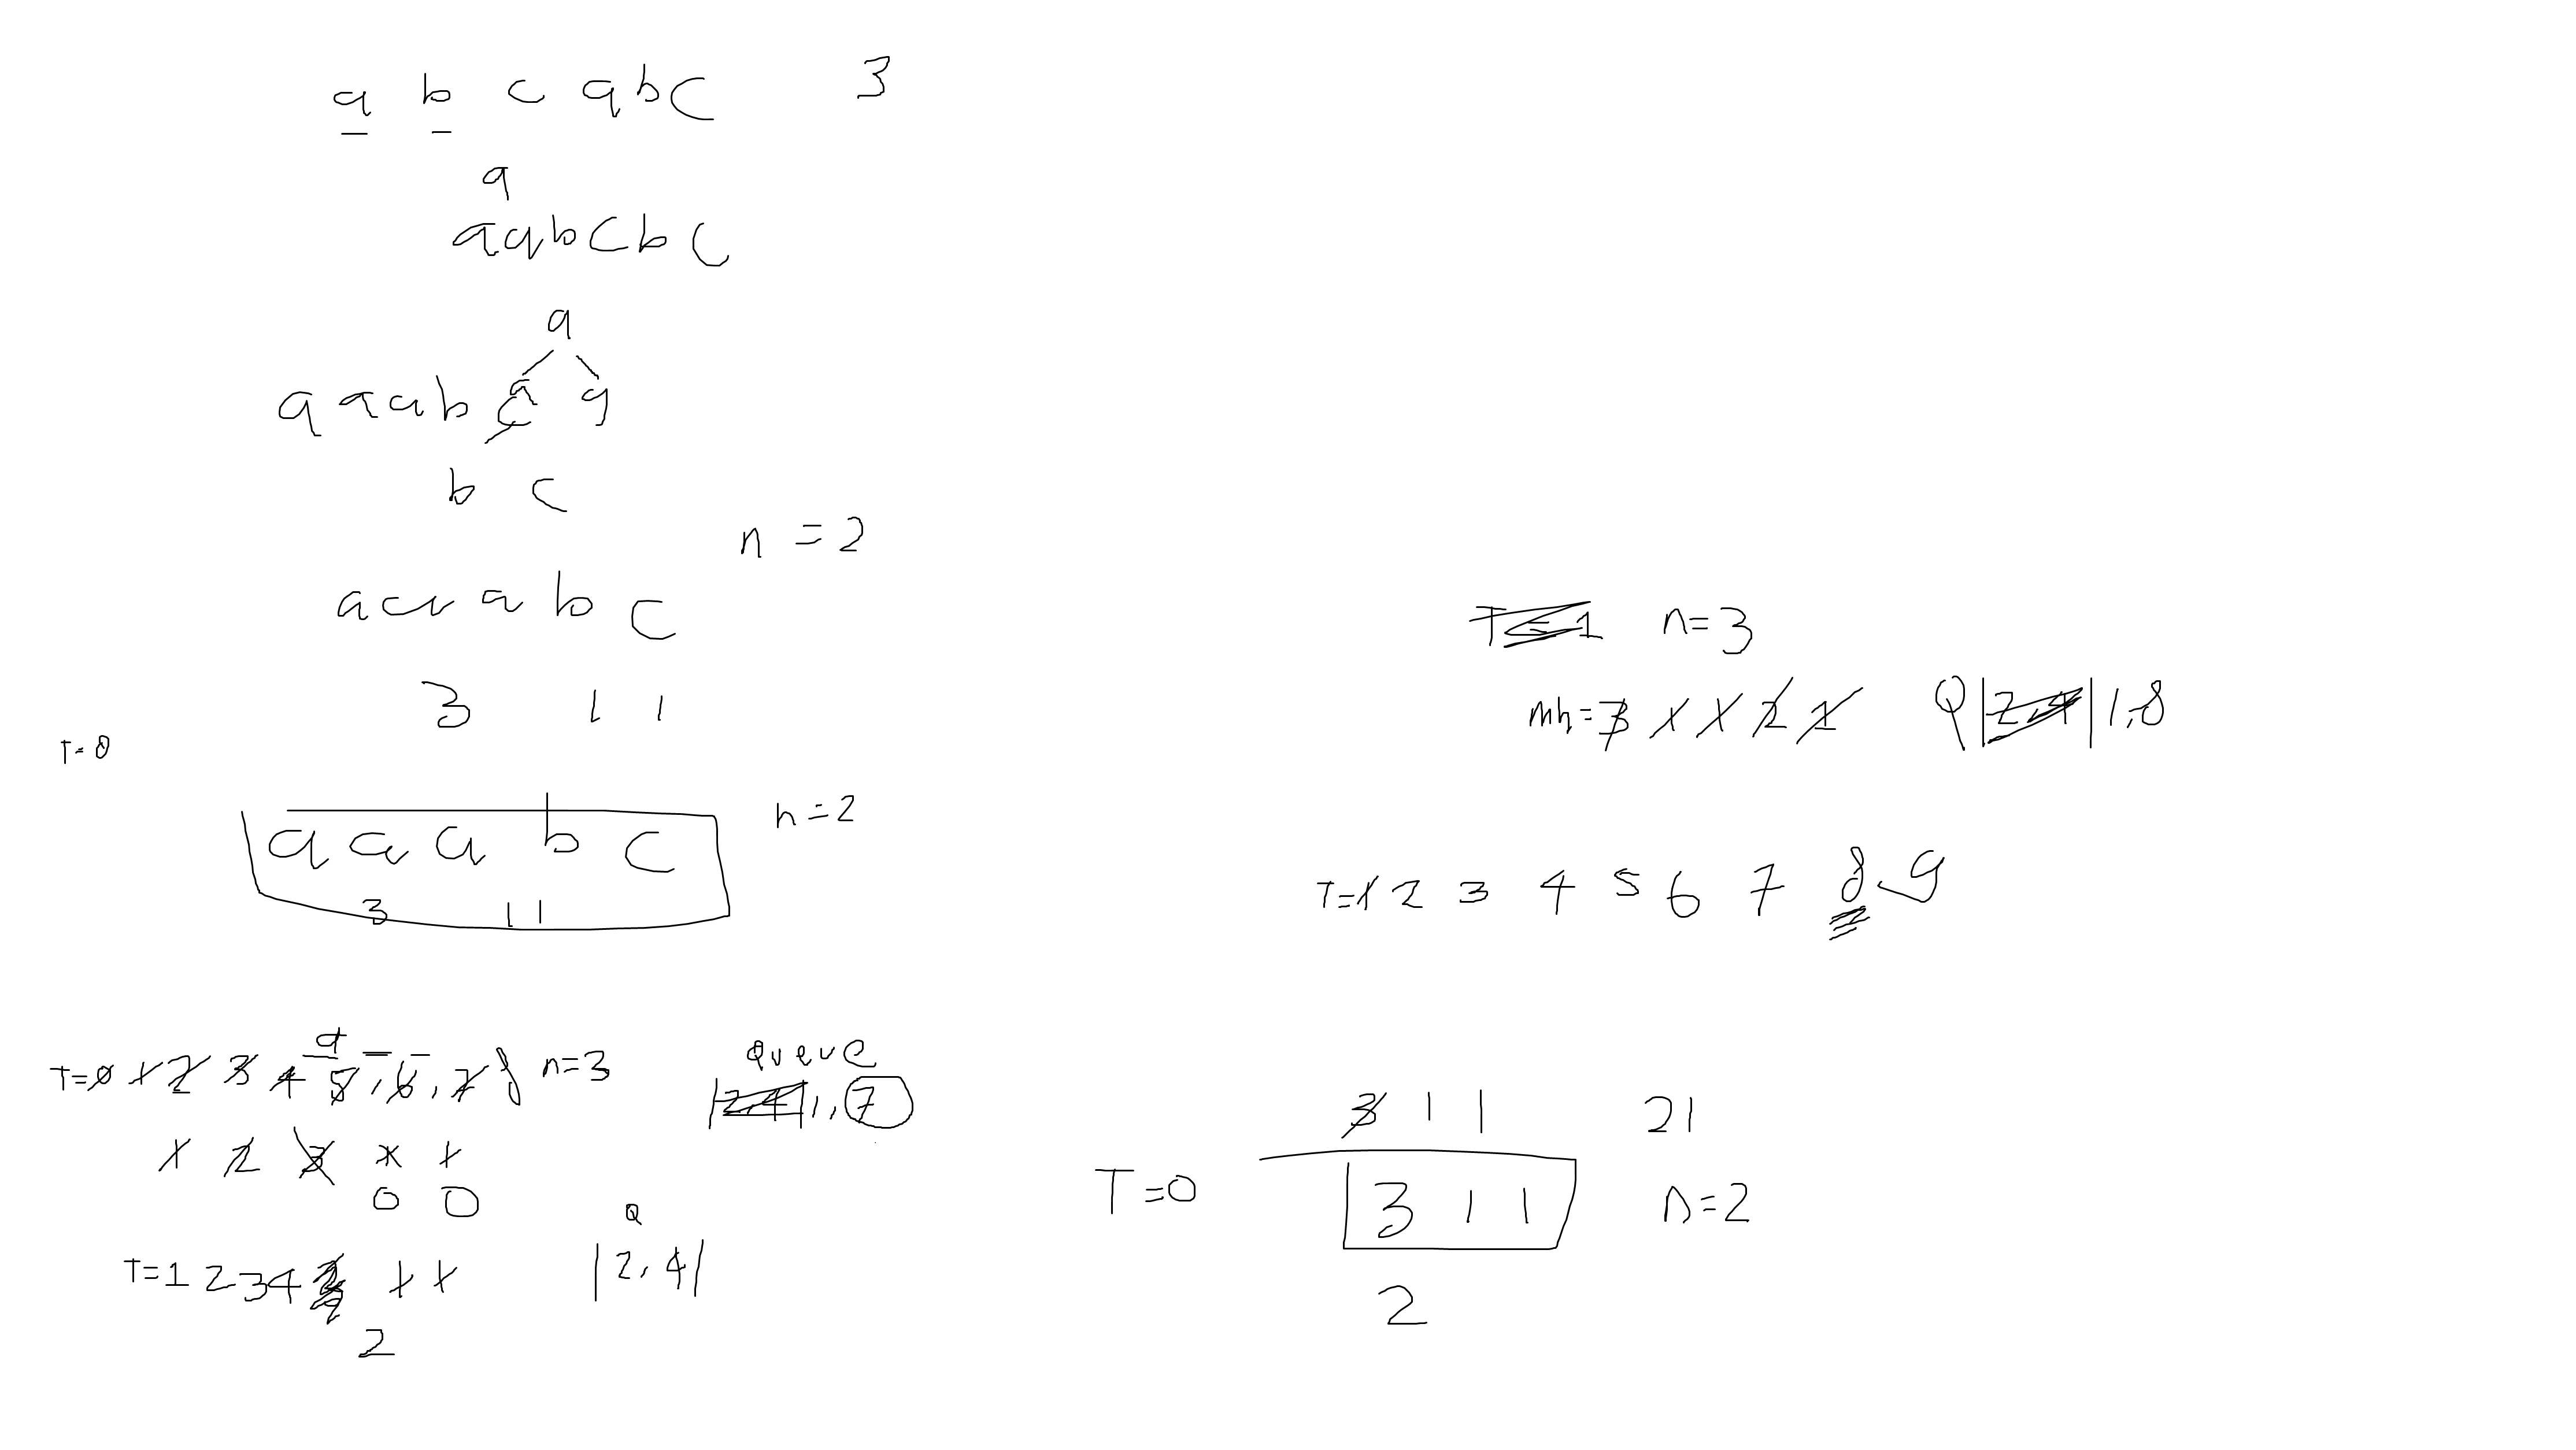 a b c a b c 3
a
a a b c b c
a
a a a b c a a
b c
n = 2
a a a b c
3 1 1
T = 0
a a a b c n = 2
3 1 1
T = 0 1 2 3 4 5, 6, 7 8 n = 3
a
Queue
| 2,4 | 1, 7
1 2 3
0 0
Q
T = 1 2 3 4 | 2, 4 |
2
T = 1 n = 3
mh = 3 1 1 2 1 Q | 2,4 | 1,8
T = 1 2 3 4 5 6 7 8 9
3 1 1 2 1
T = 0 3 1 1 n = 2
2